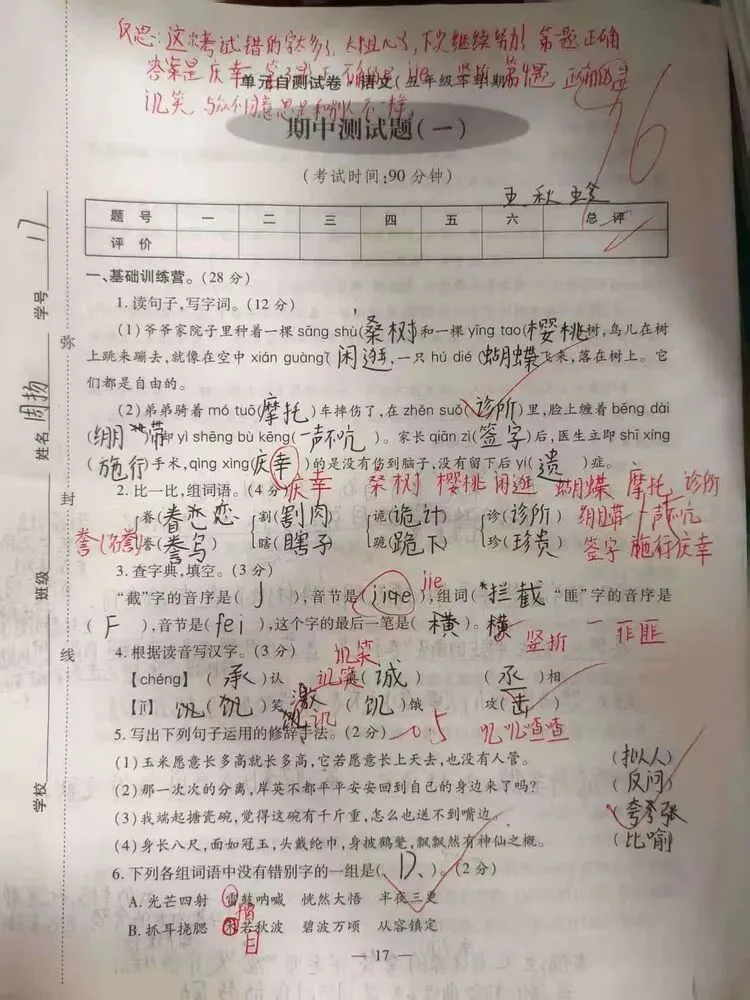 反思:这次考试错的字太多了,太粗心了,下次继续努力!第一题正确
答案是庆幸
单元自测试卷·语文(五年级
讥笑,与众不同意思是和别人不一样
76
期中测试题(一)
(考试时间:90分钟)
题 号 一 二 三 四 五 六 总 评
评 价
一、基础训练营。(28分)
1.读句子,写字词。(12分)
(1)爷爷家院子里种着一棵 sāng shù(桑树)和一棵 yīng tao(樱桃)树,鸟儿在树
上跳来蹦去,就像在空中 xián guàng(闲逛),一只 hú dié(蝴蝶)飞来,落在树上。它
们都是自由的。
(2)弟弟骑着 mó tuō(摩托)车摔伤了,在 zhěn suǒ(诊所)里,脸上缠着 bēng dài
(绷带)却 yì shēng bù kēng(一声不吭)。家长 qiān zì(签字)后,医生立即 shī xíng
(施行)手术,qìng xìng(庆幸)的是没有伤到脑子,没有留下后 yí(遗)症。
2.比一比,组词语。(4分)
庆幸 桑树 樱桃 闲逛 蝴蝶 摩托 诊所
眷(眷恋) 割(割肉) 诡(诡计) 诊(诊所) 绷带 一声不吭
誉(名誉) 誉 瞎(瞎子) 跪(跪下) 珍(珍贵) 签字 施行 庆幸
3.查字典,填空。(3分)
jie
“截”字的音序是(J),音节是(jiqe),组词(拦截 “匪”字的音序是
(F),音节是(fei),这个字的最后一笔是(横)。横 竖折 一 非匪
4.根据读音写汉字。(3分) 讥笑
【chéng】 (承)认 讥笑 (诚) (丞)相
【jī】 (饥)笑 激 讥 (饥)饿 攻(击)
5.写出下列句子运用的修辞手法。(2分) 0.5 叽叽喳喳
(1)玉米愿意长多高就长多高,它若愿意长上天去,也没有人管。 (拟人)
(2)那一次次的分离,岸英不都平平安安回到自己的身边来了吗? (反问)
(3)我端起搪瓷碗,觉得这碗有千斤重,怎么也送不到嘴边。 (夸张)
(4)身长八尺,面如冠玉,头戴纶巾,身披鹤氅,飘飘然有神仙之概。 (比喻)
6.下列各组词语中没有错别字的一组是(D)。(2分)
A.光芒四射 雷鼓呐喊 恍然大悟 半夜三更
擂
B.抓耳挠腮 木若秋波 碧波万顷 从容镇定
目
— 17 —
学号 17
姓名 周扬
班级
学校
弥
封
线